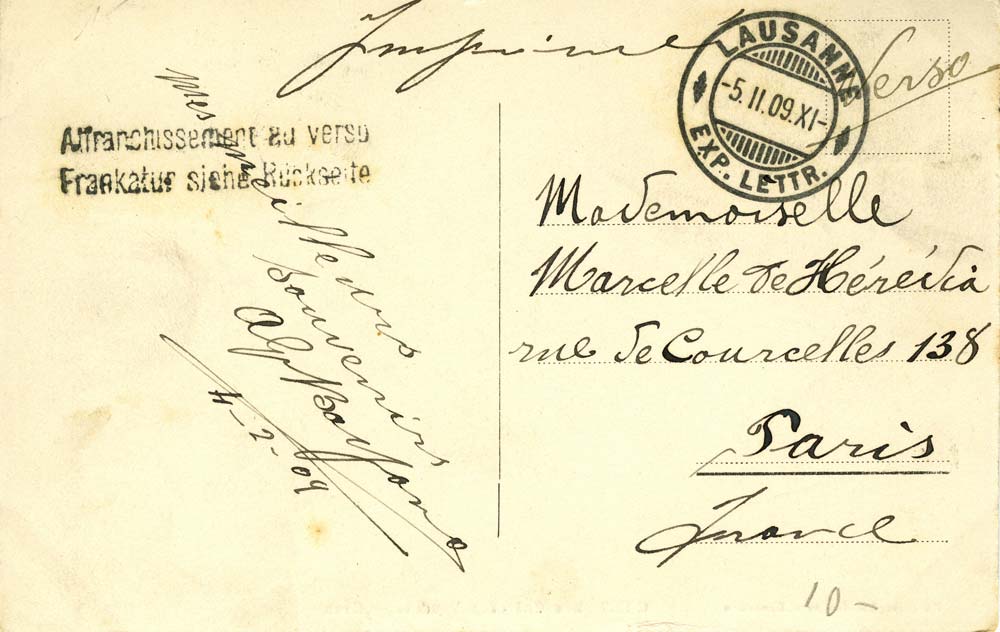 Imprimé
Verso
LAUSANNE
-5.II.09.XI-
EXP. LETTR.
Affranchissement au verso
Frankatur siehe Rückseite
Mes meilleurs
souvenirs
4-2-09
Mademoiselle
Marcelle de Hérédia
rue de Courcelles 138
Paris
France
10-